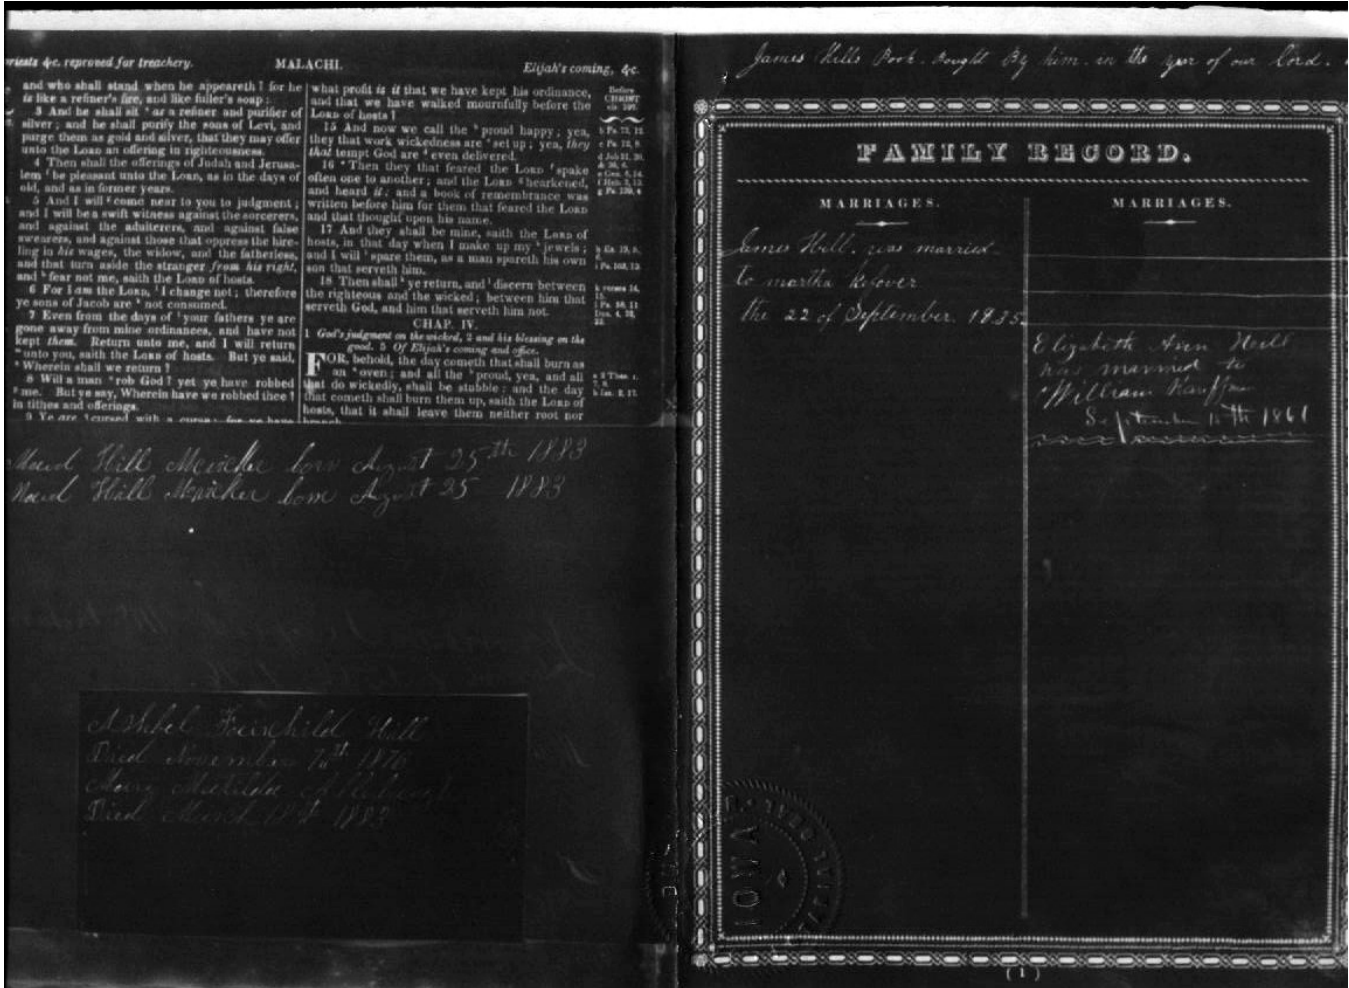 riests &c. reproved for treachery.
MALACHI.
Elijah's coming, &c.
and who shall stand when he appeareth? for he
is like a refiner's fire, and like fuller's soap:
3 And he shall sit as a refiner and purifier of
silver; and he shall purify the sons of Levi, and
purge them as gold and silver, that they may offer
unto the LORD an offering in righteousness.
4 Then shall the offerings of Judah and Jerusa-
lem be pleasant unto the LORD, as in the days of
old, and as in former years.
5 And I will come near to you to judgment;
and I will be a swift witness against the sorcerers,
and against the adulterers, and against false
swearers, and against those that oppress the hire-
ling in his wages, the widow, and the fatherless,
and that turn aside the stranger from his right,
and fear not me, saith the LORD of hosts.
6 For I am the LORD, I change not; therefore
ye sons of Jacob are not consumed.
7 Even from the days of your fathers ye are
gone away from mine ordinances, and have not
kept them. Return unto me, and I will return
unto you, saith the LORD of hosts. But ye said,
Wherein shall we return?
8 Will a man rob God? yet ye have robbed
me. But ye say, Wherein have we robbed thee?
In tithes and offerings.
9 Ye are cursed with a curse: for ye have
what profit is it that we have kept his ordinance,
and that we have walked mournfully before the
LORD of hosts?
15 And now we call the proud happy; yea,
they that work wickedness are set up; yea, they
that tempt God are even delivered.
16 Then they that feared the LORD spake
often one to another; and the LORD hearkened,
and heard it: and a book of remembrance was
written before him for them that feared the LORD
and that thought upon his name.
17 And they shall be mine, saith the LORD of
hosts, in that day when I make up my jewels;
and I will spare them, as a man spareth his own
son that serveth him.
18 Then shall ye return, and discern between
the righteous and the wicked; between him that
serveth God, and him that serveth him not.
CHAP. IV.
1 God's judgment on the wicked, 2 and his blessing on the
good. 5 Of Elijah's coming and office.
FOR, behold, the day cometh that shall burn as
an oven; and all the proud, yea, and all
that do wickedly, shall be stubble: and the day
that cometh shall burn them up, saith the LORD of
hosts, that it shall leave them neither root nor
branch.
Before
CHRIST
Hill born August 25th 1883
Hill born August 25 1883
Ashbel Fairchild Hill
Died November 1876
Mary Matilda
Died March 1883
James Hills Book. Bought By him. in the year of our Lord.
FAMILY RECORD.
MARRIAGES.
James Hill. was married
to martha
the 22 of September. 1835.
MARRIAGES.
Elizabeth Ann Hill
was married to
William
September 1861
IOWA
(1)